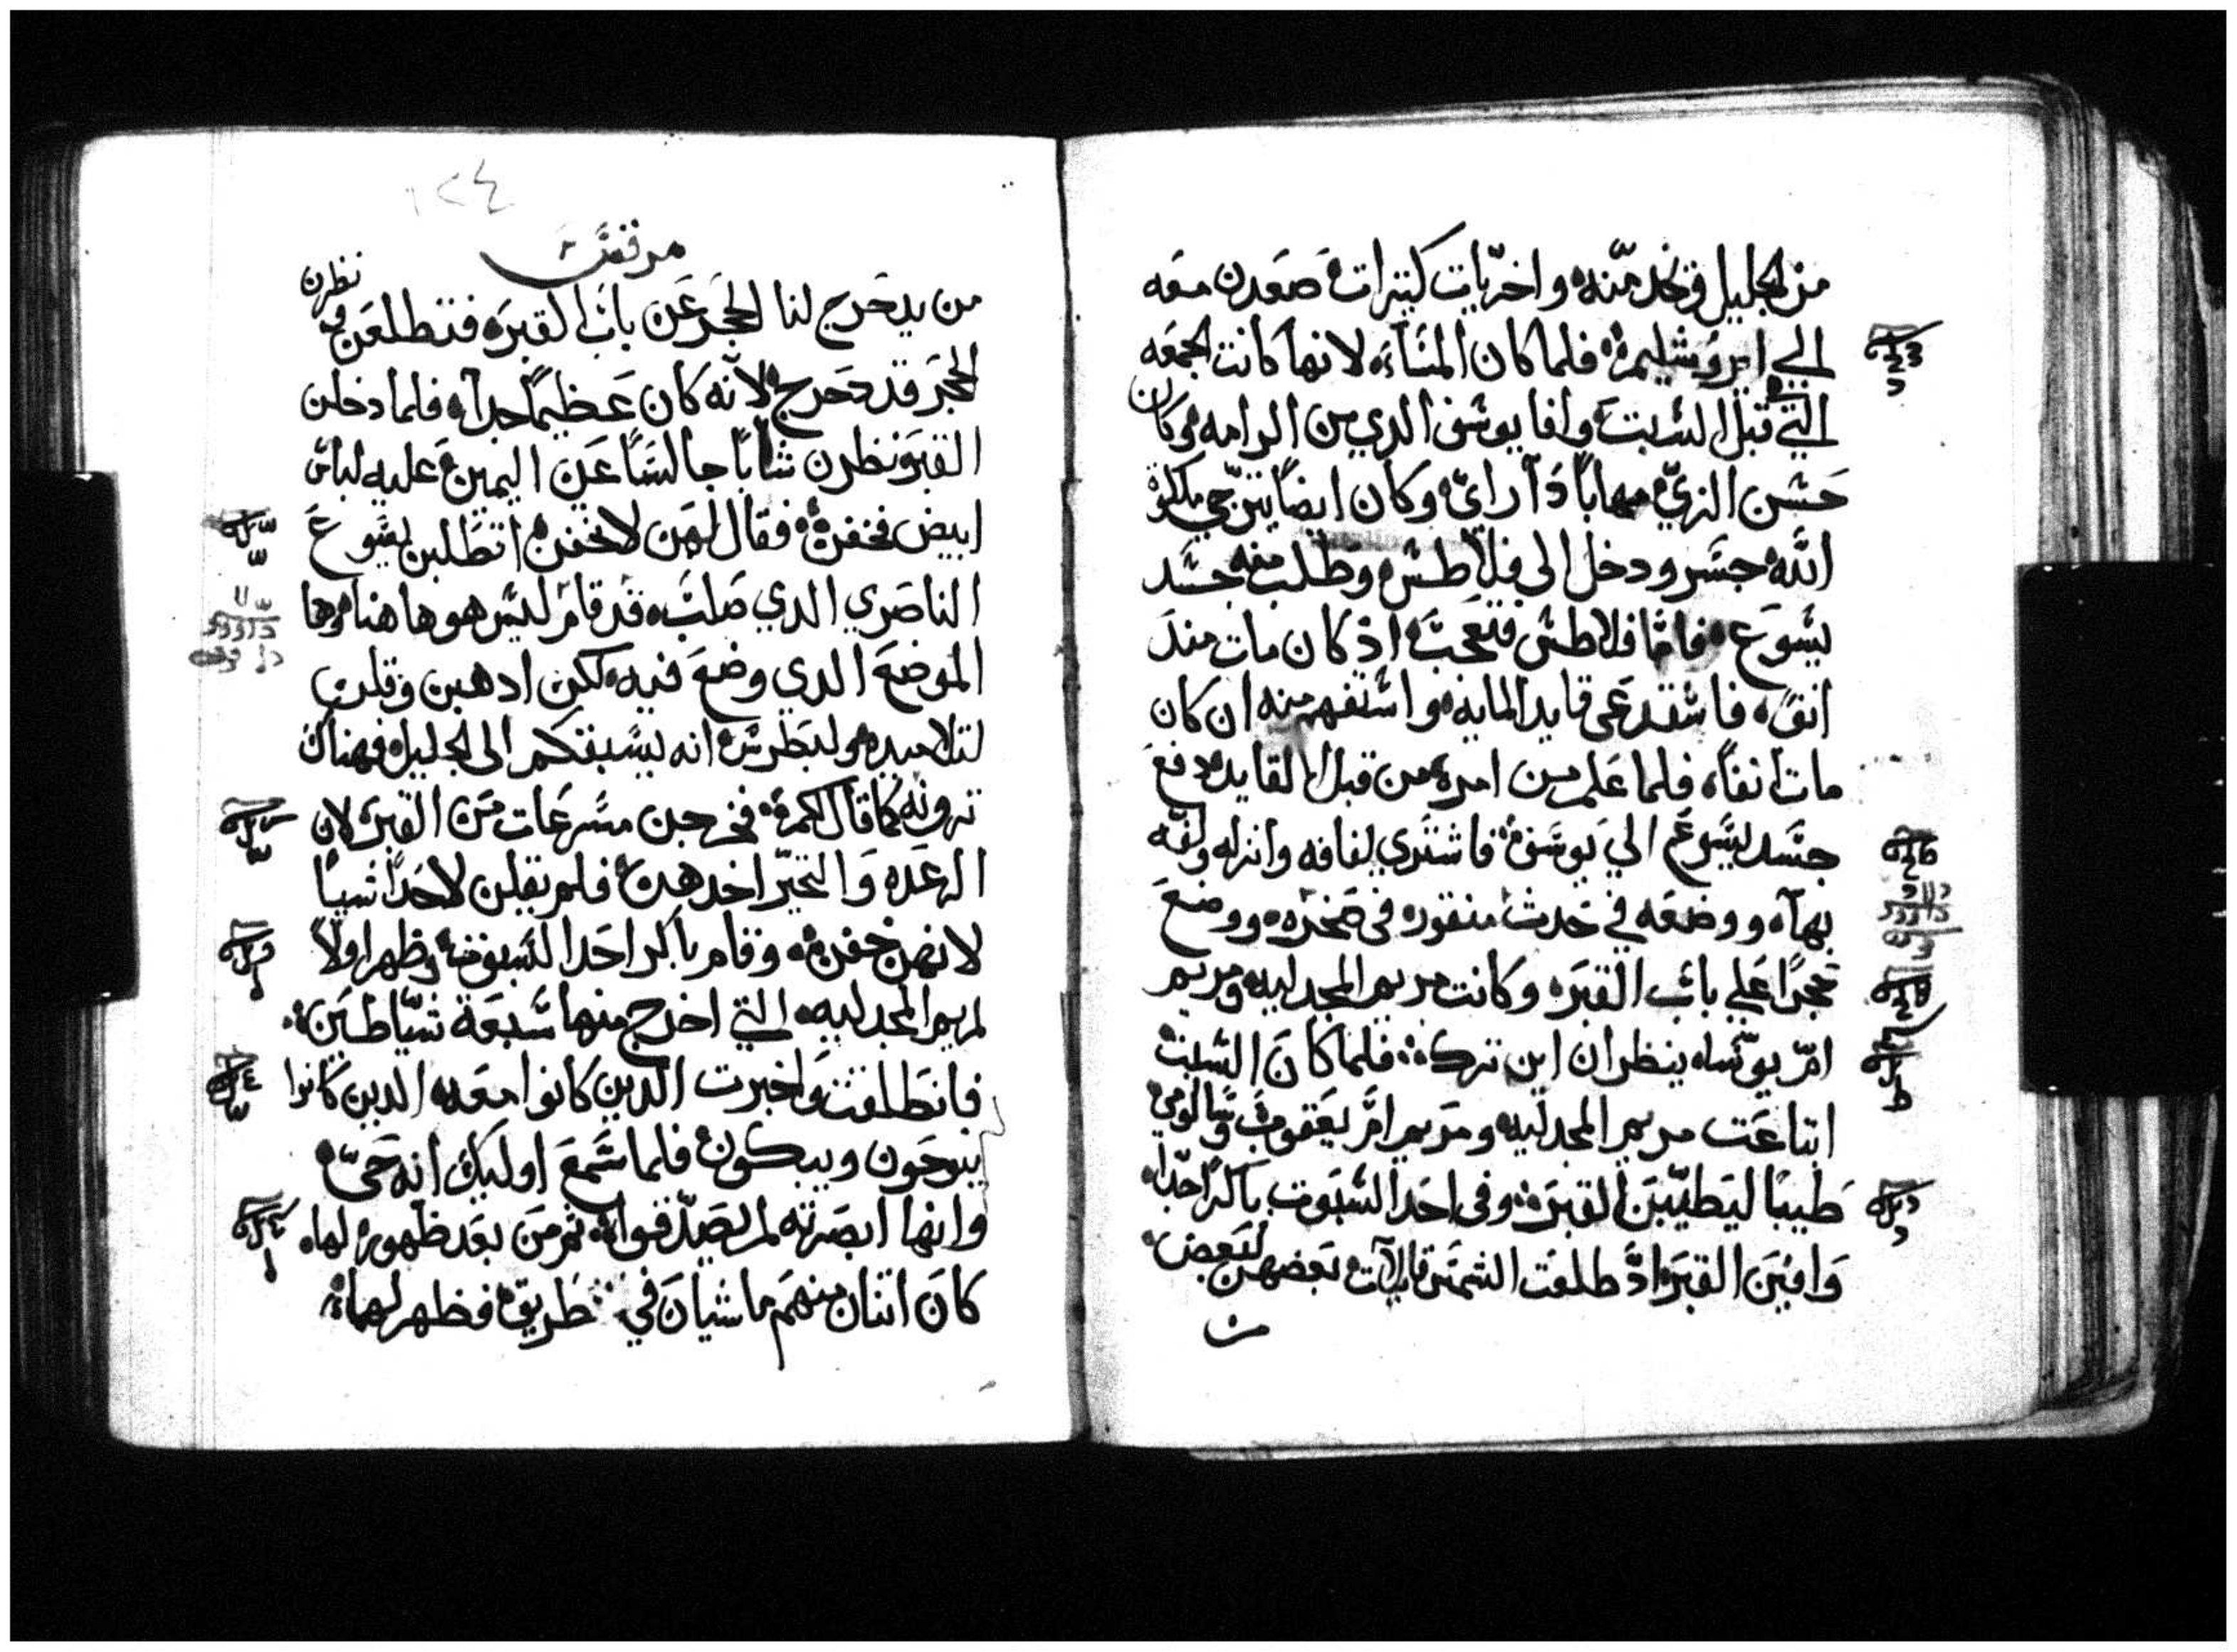 من الجليل وتخدمنه واخريات كتيرات صعدن معه
الي ايروشليم فلما كان المساء لانها كانت الجمعه
التي قبل السبت وافا يوسف الدي من الرامه وكان
حسن الزي مهابا دا راي وكان ايضا يترجي ملكوة
الله جسر ودخل الى فلاطس وطلب منه جسد
يسوع فاما فلاطس فتعجب اد كان مات مند
انفا فاستدعى قايد المايه واستفهم منه ان كان
مات انفا فلما علم من امره من قبل القايد دفع
جسد يسوع الي يوسف فاشتري لفافه وانزله ولفه
بها ووضعه في حدث منقوره في صخره ووضع
حجرا علي باب القبر وكانت مريم المجدليه ومريم
ام يوسا ينظران اين ترك فلما كان السبت
ابتاعت مريم المجدليه ومريم ام يعقوب وسالومي
طيبا ليطيبن القبر وفي احد السبوت باكرا جدا
وافين القبر اد طلعت الشمس قايلات بعضهن لبعض
من
١٢٤
مرقس
من يدحرج لنا الحجر عن باب القبر فتطلعن ونظرن
الحجر قد دحرج لانه كان عظيما جدا فلما دخلن
القبر ونظرن شابا جالسا عن اليمين عليه لباس
ابيض فخفن فقال لهن لا تخفن اتطلبن يسوع
الناصري الدي صلب قد قام ليس هو هاهنا وها
الموضع الدي وضع فيه لكن ادهبن وقلن
لتلاميده ولبطرس انه يسبقكم الى الجليل فهناك
ترونه كما قال لكم فخرجن مسرعات من القبر لان
الرعده والتحير اخدهن فلم يقلن لاحد شيا
لانهن خفن وقام باكر احد السبوت وظهر اولا
لمريم المجدليه التي اخرج منها سبعة شياطين
فانطلقت واخبرت الدين كانوا معه الدين كانوا
ينوحون ويبكون فلما سمع اوليك انه حي
وانها ابصرته لم يصدقوا ثم من بعد ظهوره لها
كان اتنان منهم ماشيان في طريق فظهر لهما